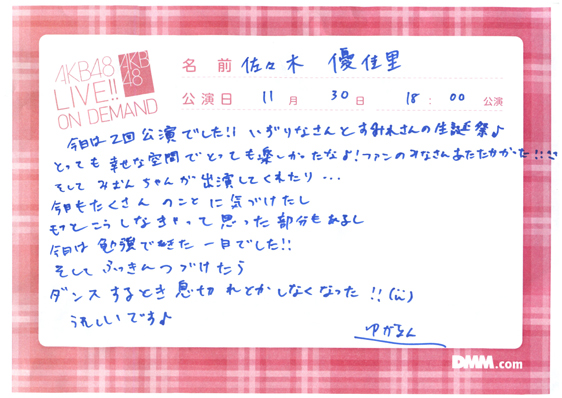 AKB48
LIVE!!
ON DEMAND
AKB
48
名前 佐々木 優佳里
公演日 11月 30日 18:00 公演
今日は2回公演でした!! いずりなさんとすみれさんの生誕祭♪
とっても幸せな空間でとっても楽しかったなよ!ファンのみなさんあたたかかった!!
そして みぽんちゃんが出演してくれたり・・・
今日もたくさん のことに気づけたし
もっとこうしなきゃって思った部分もあるし
今日は 勉強できた 一日でした!!
そして ふっきんつづけたら
ダンスするとき息切れとかしなくなった!!(ü)
うれしいです♪
ゆかるん
DMM.com